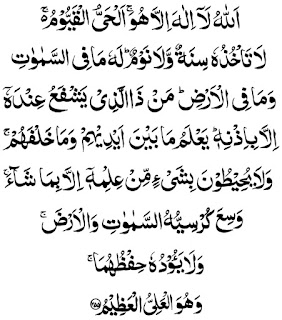 اَللّٰهُ لَاۤ اِلٰهَ اِلَّا هُوَۚ اَلْحَیُّ الْقَیُّوْمُ ۚ۬
لَا تَاْخُذُهٗ سِنَةٌ وَّلَا نَوْمٌ ؕ لَهٗ مَا فِی السَّمٰوٰتِ
وَمَا فِی الْاَرْضِ ؕ مَنْ ذَا الَّذِیْ یَشْفَعُ عِنْدَهٗۤ
اِلَّا بِاِذْنِهٖ ؕ یَعْلَمُ مَا بَیْنَ اَیْدِیْهِمْ وَمَا خَلْفَهُمْ ۚ
وَلَا یُحِیْطُوْنَ بِشَیْءٍ مِّنْ عِلْمِهٖۤ اِلَّا بِمَا شَآءَ ۚ
وَسِعَ كُرْسِیُّهُ السَّمٰوٰتِ وَالْاَرْضَ ۚ
وَلَا یَـُٔوْدُهٗ حِفْظُهُمَا ۚ
وَهُوَ الْعَلِیُّ الْعَظِیْمُ ﴿۲۵۵﴾